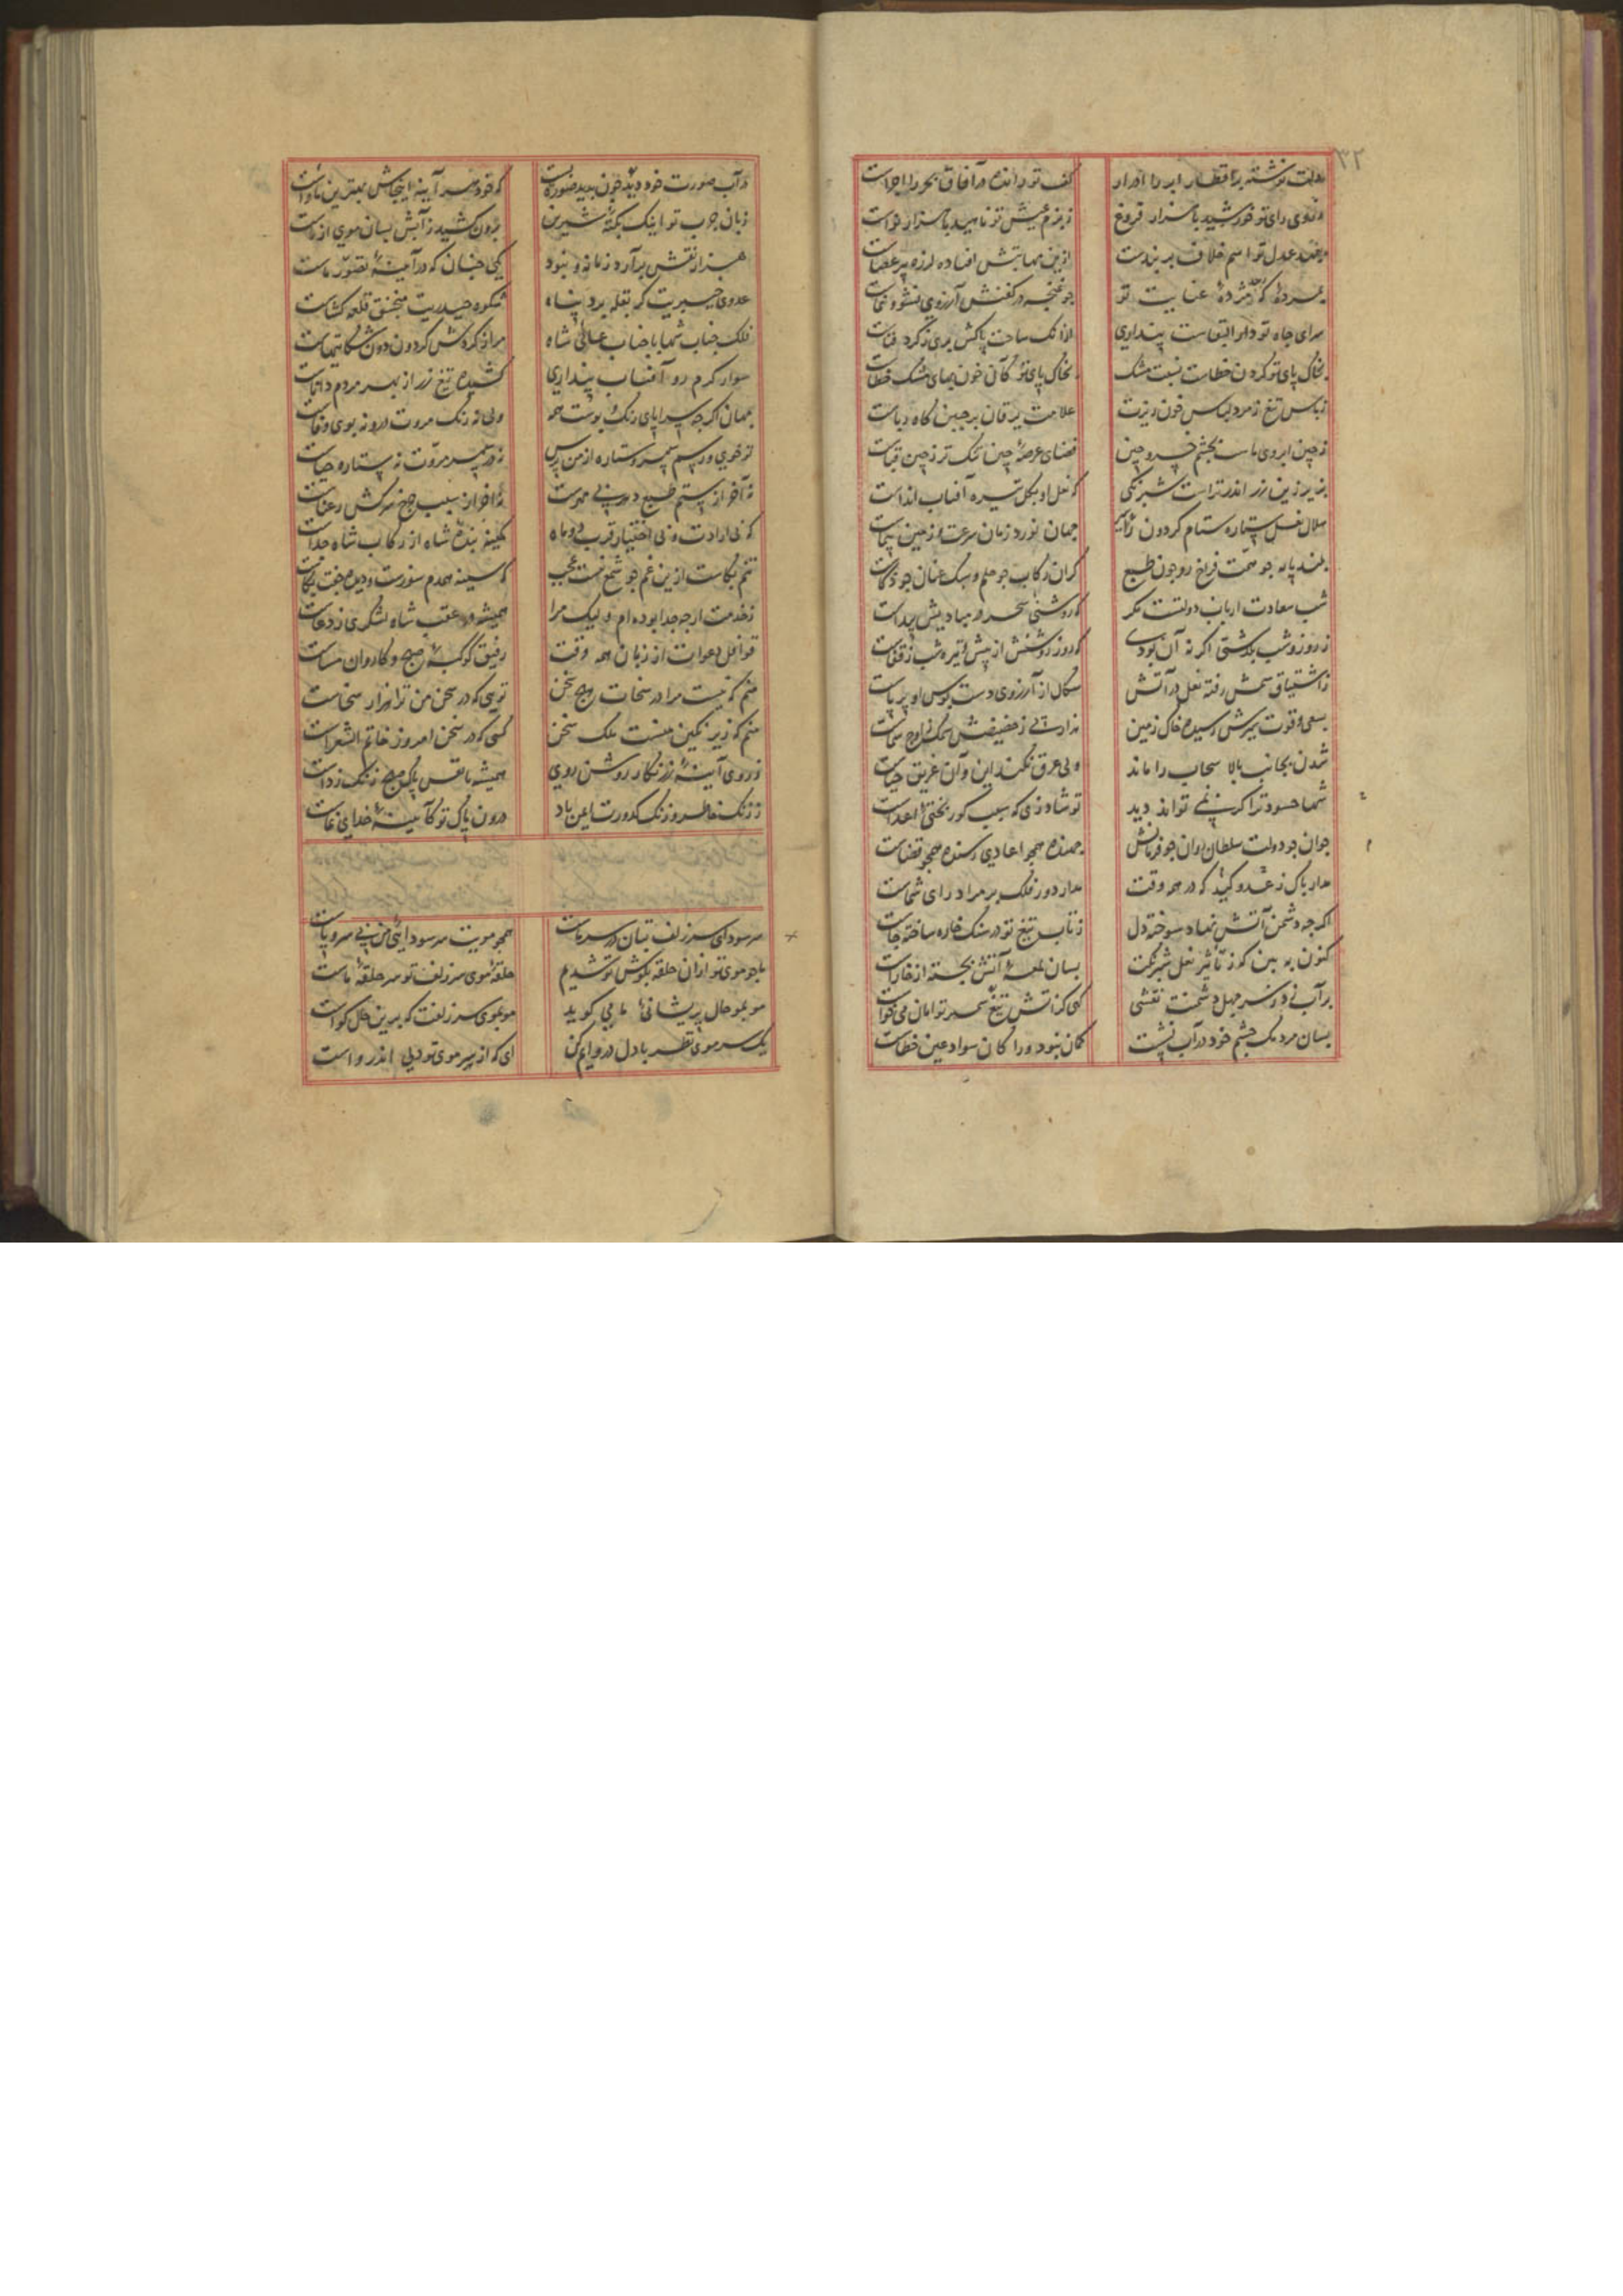 ۳۲
دولت نوشته بر اقطار ابر را ادرار کف تو رانده در آفاق بحر را اجراست
ز روی رای تو خورشید با هزار فروغ ز بزم عیش تو ناهید با هزار نواست
عدل تو اسم خلاف بر بیدست ازین مهابتش افتاده لرزه بر اعضاست
مژدهٔ عنایت تو چو غنچه در کفنش آرزوی نشو و نماست
سرای جاه تو دار البقاست پنداری از آنک ساحت پاکش بری ز گرد فناست
بخاک پای تو کردن خطاست نسبت مشک بخاک پای تو کان خون بهای مشک خطاست
ز باس تیغ زمرد لباس خون ریزت علامت یرقان بر جبین کاه رباست
ز چین ابروی باست بچشم خسرو چین فضای عرصهٔ چین تنک تر ز چین قباست
بزیر زین زر اندر تراست شبرنکی که نعل او بکل تیره آفتاب انداست
هلال نعل ستاره ستام کردون جهان نورد زمان سرعت و زمین پیماست
بلند پایه جو همت فراخ رو جون طبع کران رکاب جو حلم و سبک عنان جو ذکاست
شب سعادت ارباب دولتست مکر که روشنی سحر در مبادیش پیداست
ز روز و شب بگذشتی اکر نه آن بودی که روز روشنش از پیش و تیره شب ز قفاست
ز اشتیاق سمش رفته نعل در آتش شکال از آرزوی دست بوس او بر پاست
بسعی و قوت سیرش رسیده خاک زمین ز حضیض سمک باوج سماست
شدن بجانب بالا سحاب را ماند ولی عرق نکند این و آن غریق حیاست
شها حسود ترا کر نمی تواند دید تو شاد زی که سبب کور بختی اعداست
جوان جو دولت سلطان روان جو فرمانش جهنده همجو اعادی رسنده همجو قضاست
مدار باک ز عدو کید که در همه وقت مدار دور فلک بر مراد رای شماست
اکر جه دشمن آتش نهاد سوخته دل ز تاب تیغ تو در سنک خاره ساخته جاست
کنون ببین که ز تاثیر نعل شبرنکت بسان لمعهٔ آتش بجسته از خاراست
بر آب نی دو سر جهل دشمنت نقشی کی کز آتش تیغ تو امان می خواست
بسان مردمک جشم خود در آب نشست کمان نبود ورا کان سواد عین خطاست
در آب صورت خود دید جون بدید که خود هر آینه اینجاش بهترین ماواست
زبان جرب تو اینک بنکتهٔ شیرین برون کشید ز آبش بسان موی از ماست
هزار نقش برآرد زمانه و نبود یکی جنان که در آینهٔ تصور ماست
عدوی خیبریت کر بقلعه برد پناه شکوه حیدریت منجنیق قلعه کشاست
فلک جناب شها با جناب عالی شاه مرا ز کردش کردون دون شکایتهاست
سوار کرم رو آفتاب پنداری کشیده تیغ زر از بهر مردم داناست
جهان اکرجه سراپای رنک و بوست همه ولی نه رنک مروت درو نه بوی وفاست
تو خوی و رسم سپهر و ستاره از من پرس نه در سپهر مروت نه در ستاره حیاست
نه آخر از ستم طبع دون پی مهرست نه آخر از سبب جرخ سرکش رعناست
که بی ارادت و بی اختیار قرب دو ماه کمینه بندهٔ شاه از رکاب شاه جداست
تنم بکاست ازین غم جو شمع نیست عجب که سینه همدم سوزست و دیده جفت بکاست
ز خدمت ارجه جدا بوده ام و لیک مرا همیشه در عقب شاه لشکری ز دعاست
قوافل دعوات از زبان همه وقت رفیق کوکبهٔ صبح و کاروان مساست
منم که نیست مرا در سخن تویی که در سخن من ترا هزار سخاست
منم که زیر نکین منست ملک سخن کسی که در سخن امروز خاتم الشعراست
ز روی آینهٔ زرنکار روشن روی همیشه تا نفس پاک صبح زنک زداست
ز زنک خاطر و زنک کدورت ایمن باد درون پاک تو کآیینهٔ خدایی نماست
سر سودای سر زلف بتان در سر ماست همجو مویت سر سودایی من بی سر و پاست
تا جو موی تو از آن حلقه بکوش تو شدیم حلقهٔ موی سر زلف تو سر حلقهٔ ماست
مو بمو حال پریشانی ما می کوید مو بموی سر زلفت که برین حال کواست
یک سر موی نظر با دل درواﯼ کن ای که از هر سر موی تو دلی اندر واست